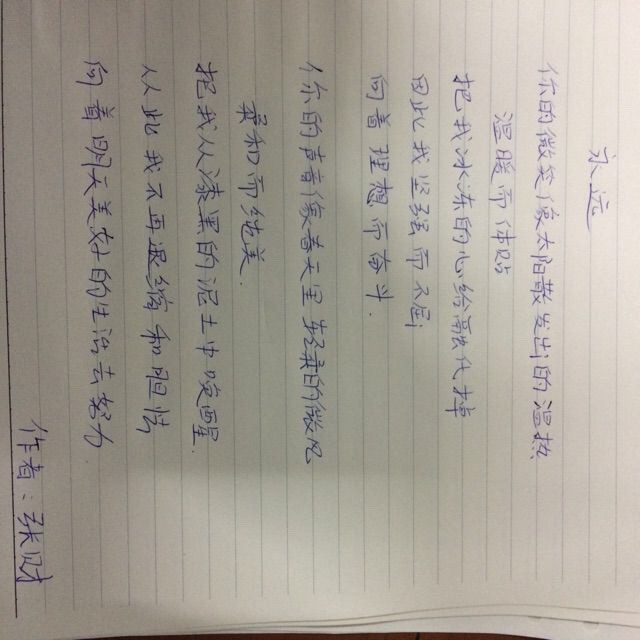 永远
你的微笑像太阳散发出的温热
温暖而体贴
把我冰冻的心给融化掉
因此我坚强而不屈
向着理想而奋斗.
你的声音像春天里轻柔的微风
柔和而纯美.
把我从漆黑的泥土中唤醒
从此我不再退缩和胆怯
向着明天美好的生活去努力.
作者:张财